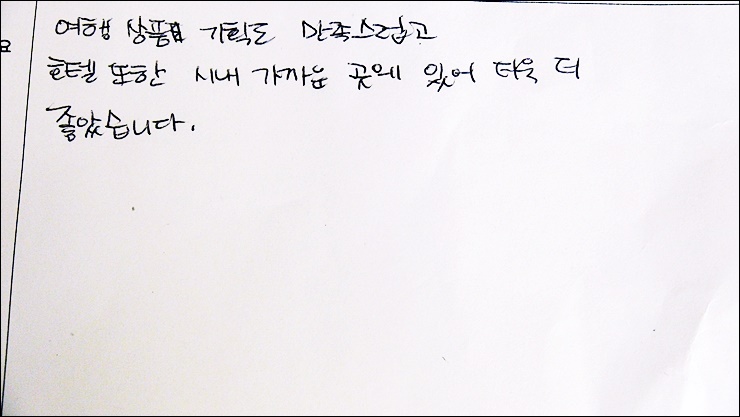 요
여행 상품 기획도 만족스럽고
호텔 또한 시내 가까운 곳에 있어 더욱 더
좋았습니다.